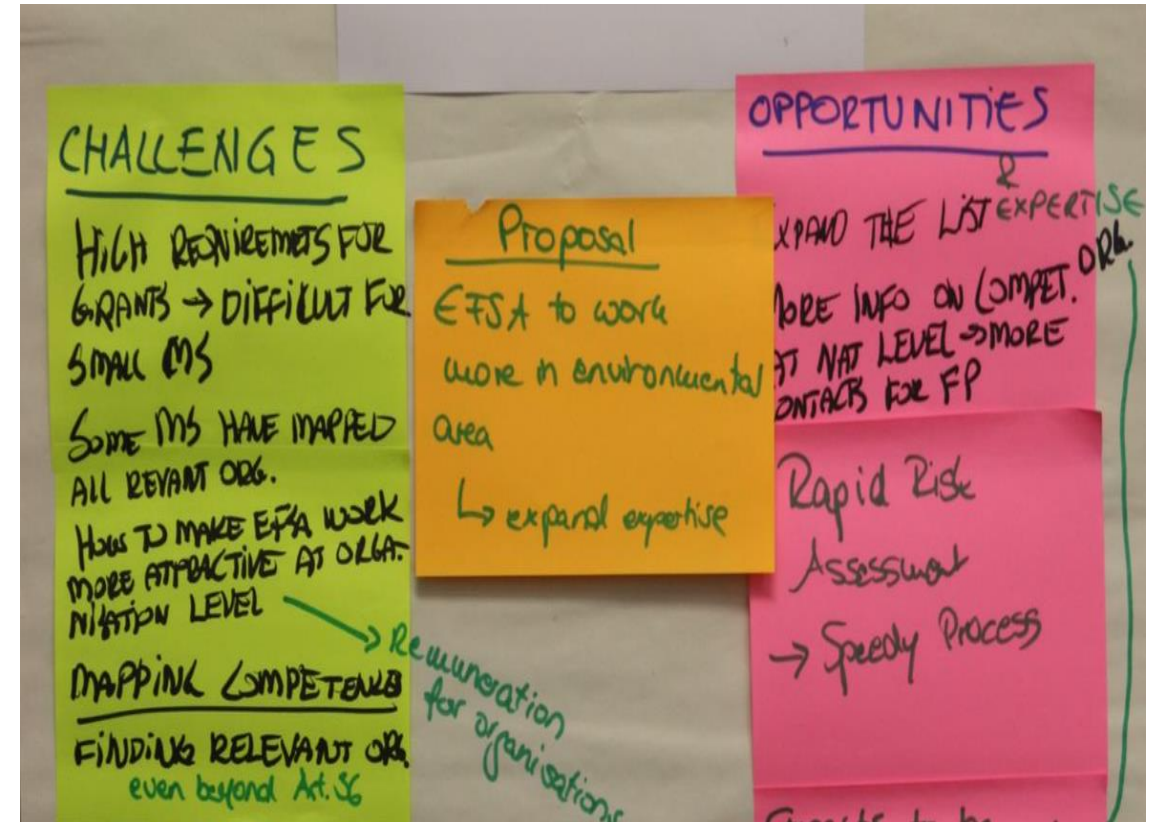 CHALLENGES
HIGH REQNIREMETS FOR
GRANTS → DIFFICULT FOR
SMALL MS
SOME MS HAVE MAPPED
ALL REVANT ORG.
HOW TO MAKE EFSA WORK
MORE ATTRACTIVE AT ORGA-
NISATION LEVEL
→ Remuneration
for organisations
MAPPING COMPETENCES
FINDING RELEVANT ORG.
even beyond Art. 36
Proposal
EFSA to work
more in environmental
area
↳ expand expertise
OPPORTUNITIES
&
XPAND THE LIST EXPERTISE
MORE INFO ON COMPET. ORG.
AT NAT LEVEL → MORE
ONTACTS FOR FP
Rapid Risk
Assessment
→ Speedy Process